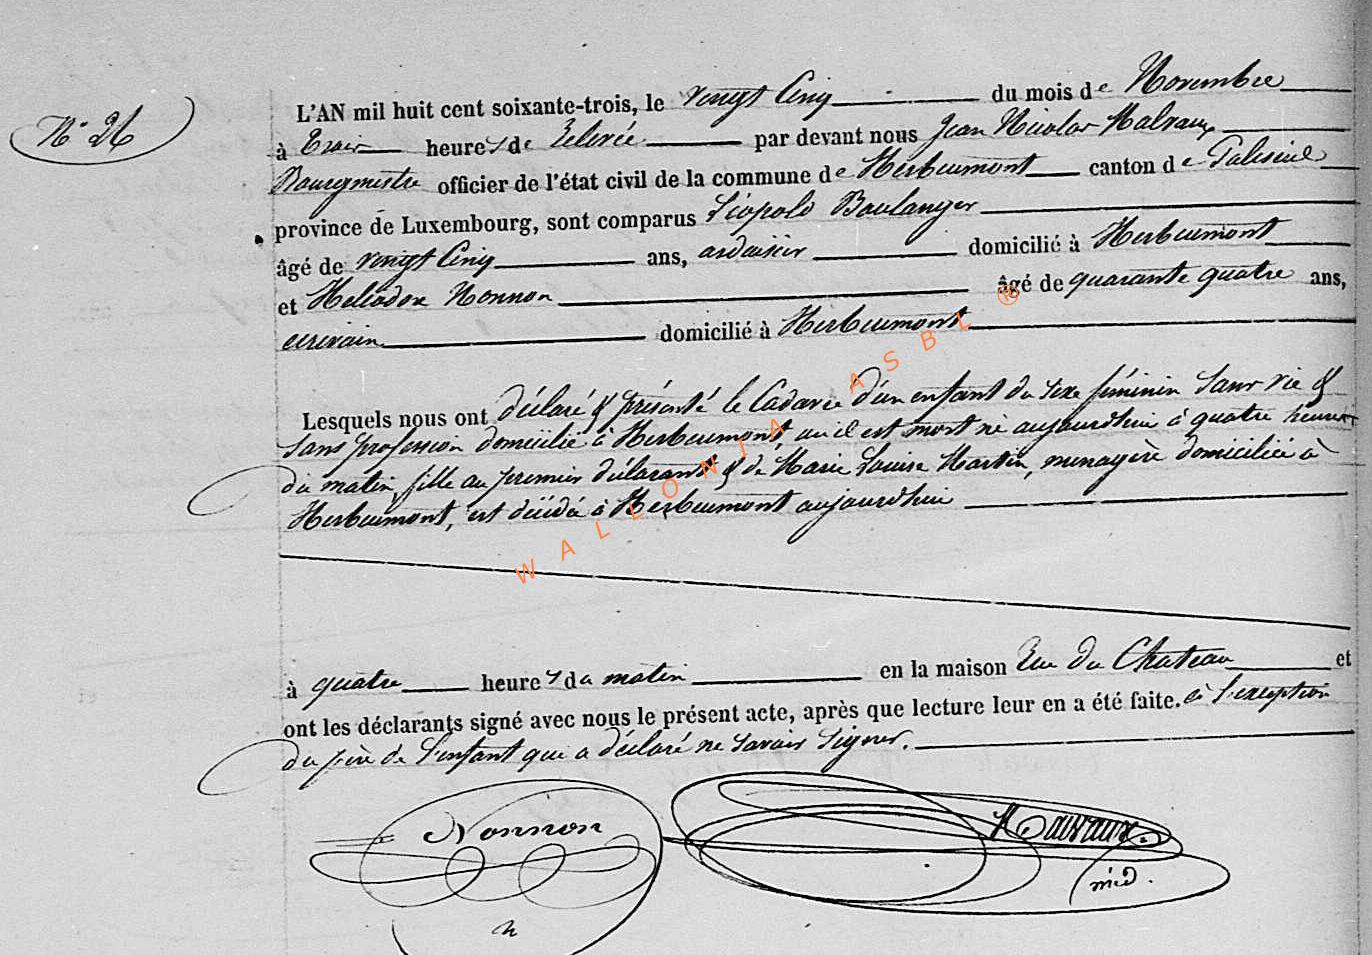 N° 26
L'AN mil huit cent soixante-trois, le vingt Cinq du mois de Novembre
à trois heures de Relevée par devant nous Jean Nicolas Malvaux
Bourgmestre officier de l'état civil de la commune de Herbeumont canton de Paliseul
province de Luxembourg, sont comparus Léopold Boulanger
âgé de vingt Cinq ans, ardoisier domicilié à Herbeumont
et Heliodore Nonnon âgé de quarante quatre ans,
écrivain domicilié à Herbeumont
Lesquels nous ont déclaré & présenté le Cadavre d'un enfant du sexe féminin sans vie &
sans profession domicilié à Herbeumont, où il est mort né aujourdhui à quatre heures
du matin, fille au premier déclarant & de Marie Louise Martin, menagère domiciliée à
Herbeumont, est décédé à Herbeumont aujourdhui
à quatre heures du matin en la maison Rue du Chateau et
ont les déclarants signé avec nous le présent acte, après que lecture leur en a été faite. à l'exception
du père de l'enfant qui a déclaré ne savoir signer.
Nonnon
Malvaux
WALLONIA ASBL ®